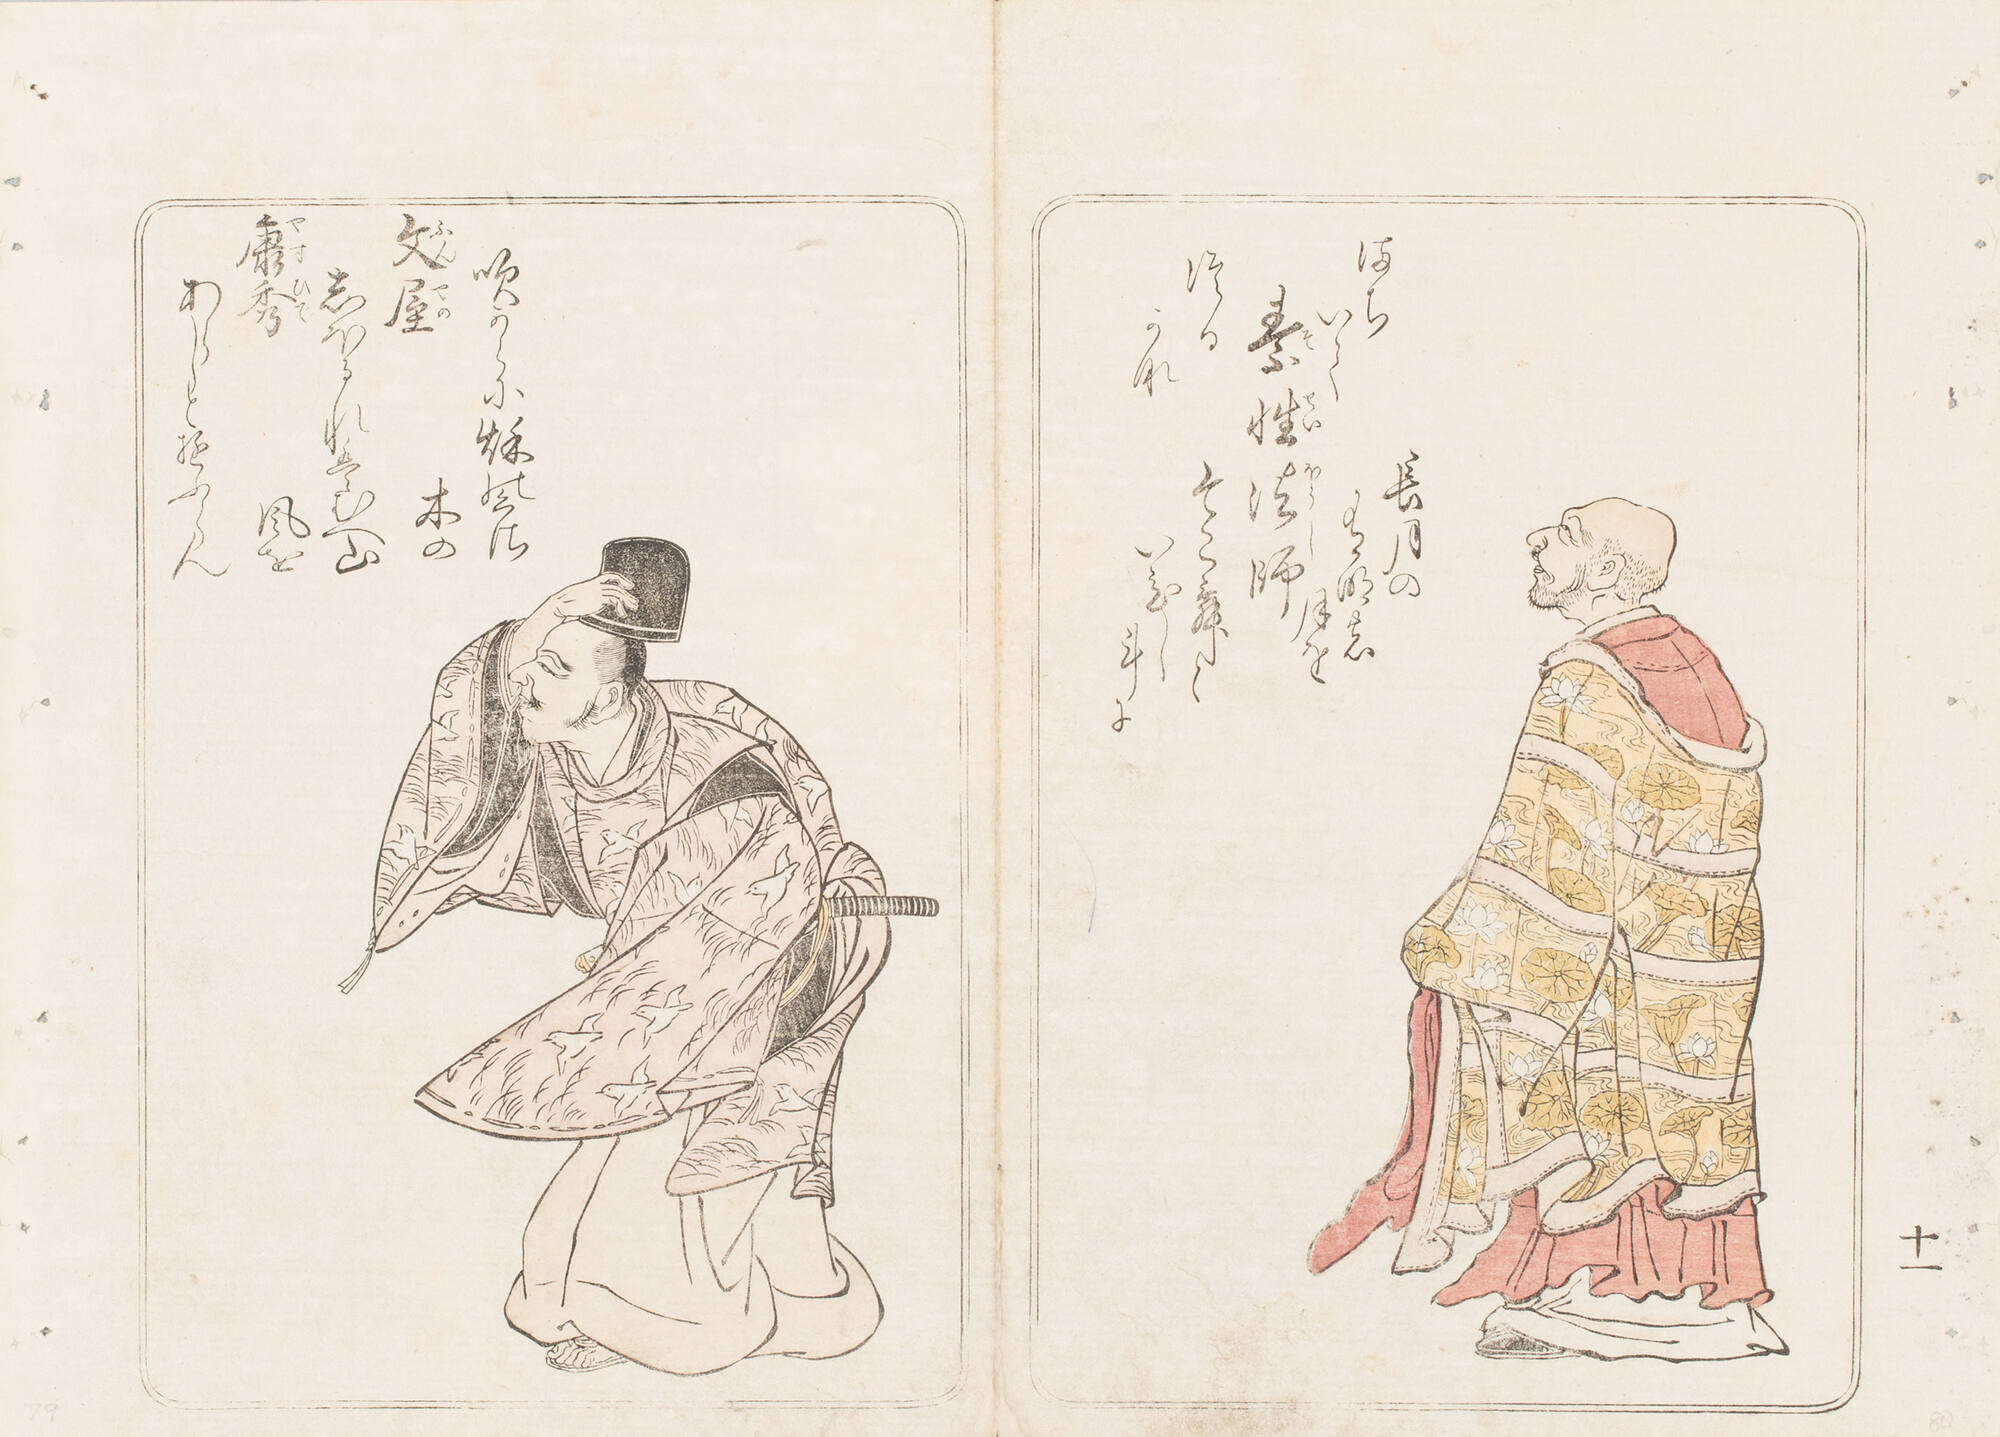 今こむと
いひし
斗に
長月の
有明の
月を
まち
いて
つる
かな
素性法師
そせいほうし
十一
吹からに秋の草
木の
しほるれはむへ山
風を
あらしといふらん
文屋
ふんやの
康秀
やすひて
79
80